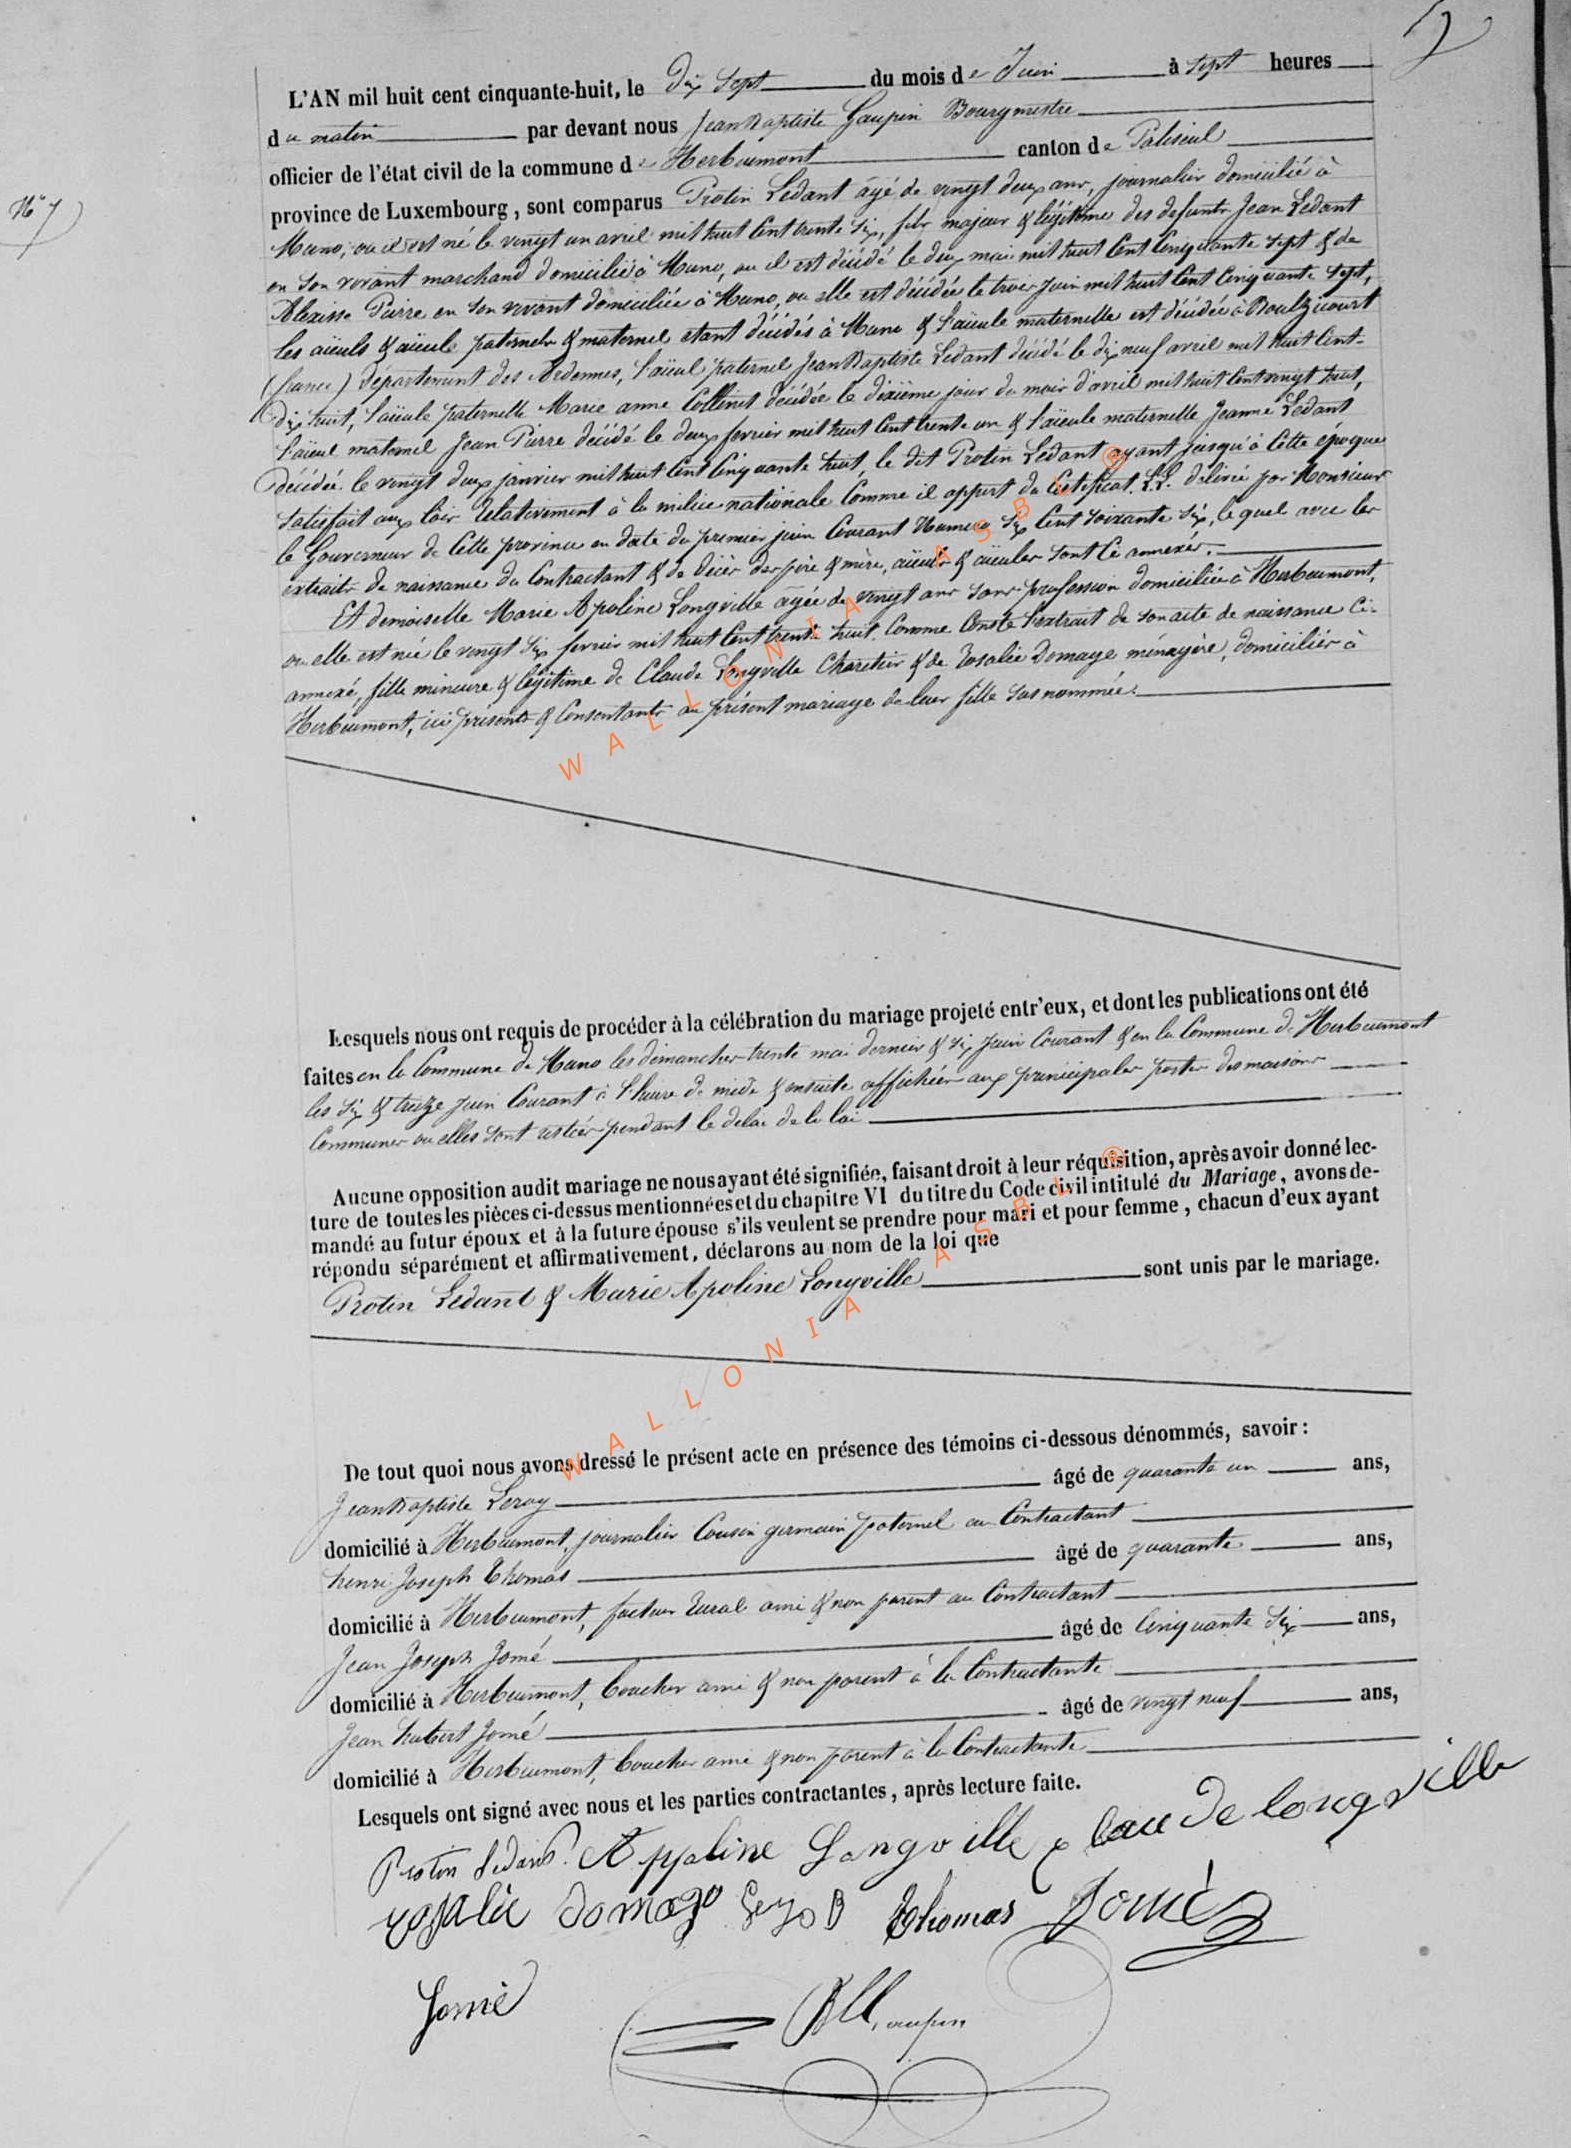 2
L'AN mil huit cent cinquante-huit, le Dix Sept du mois de Juin à Sept heures
du matin par devant nous Jean Baptiste Gaupin Bourgmestre
officier de l'état civil de la commune de Herbeumont canton de Paliseul
N° 7
province de Luxembourg, sont comparus Protin Ledant âgé de vingt deux ans, journalier domicilié à
Muno, ou il est né le vingt un avril mil huit Cent trente Six, fils majeur & légitime des defunts Jean Ledant
en Son vivant marchand domicilié à Muno, ou il est décédé le deux mai mil huit Cent Cinquante sept & de
Pierre en Son vivant domiciliée à Muno, ou elle est décédée le trois juin mil huit Cent Cinquante Sept,
les aïeuls & aïeule paternels & maternel étant décédés à Muno & l'aïeule maternelle est décédée à Boulzicourt
(france) Département des Ardennes, l'aïeul paternel Jean Baptiste Ledant décédé le dix neuf avril mil huit Cent-
Dix huit, l'aïeule paternelle Marie anne Collinet décédée le dixième jour du mois d'avril mil huit Cent vingt huit,
l'aïeul maternel Jean Pierre décédé le deux fevrier mil huit Cent trente un & l'aïeule maternelle Jeanne Ledant
décédée le vingt deux janvier mil huit Cent Cinquante huit, le dit Protin Ledant ayant jusqu'à Cette époque
Satisfait aux lois relativement à la milice nationale Comme il appert du Certificat LL. délivré par Monsieur
le Gouverneur de Cette province en date du premier juin Courant Numero Six Cent Soixante Six, lequel avec les
extraits de naissance du Contractant & de décès des père & mère, aïeuls & aïeules Sont Ci annexés.
Et demoiselle Marie Apoline Longville âgée de vingt ans Sans profession domiciliée à Herbeumont,
ou elle est née le vingt Six fevrier mil huit Cent trente huit Comme Conste l'extrait de Son acte de naissance Ci-
annexé, fille mineure & légitime de Claude Longville Charetier & de Rosalie Domage ménagère, domiciliés à
Herbeumont, ici présents & Consentants au présent mariage de leur fille Susnommée.
Lesquels nous ont requis de procéder à la célébration du mariage projeté entr'eux, et dont les publications ont été
faites en la Commune de Muno les dimanches trente mai dernier & Six Juin Courant & en la Commune de Herbeumont
les Six & treize Juin Courant à l'heure de midi & ensuite affichées aux principales portes des maisons
Communes ou elles Sont restées pendant le delai de la loi
Aucune opposition audit mariage ne nous ayant été signifiée, faisant droit à leur réquisition, après avoir donné lec-
ture de toutes les pièces ci-dessus mentionnées et du chapitre VI du titre du Code civil intitulé du Mariage, avons de-
mandé au futur époux et à la future épouse s'ils veulent se prendre pour mari et pour femme, chacun d'eux ayant
répondu séparément et affirmativement, déclarons au nom de la loi que
Protin Ledant & Marie Apoline Longville sont unis par le mariage.
De tout quoi nous avons dressé le présent acte en présence des témoins ci-dessous dénommés, savoir :
Jean Baptiste Leroy âgé de quarante un ans,
domicilié à Herbeumont, journalier Cousin germain paternel au Contractant
henri Joseph Thomas âgé de quarante ans,
domicilié à Herbeumont, facteur rural ami & non parent au Contractant
Jean Joseph Jomé âgé de Cinquante Six ans,
domicilié à Herbeumont, boucher ami & non parent à la Contractante
Jean hubert Jomé âgé de vingt neuf ans,
domicilié à Herbeumont, boucher ami & non parent à la Contractante
Lesquels ont signé avec nous et les parties contractantes, après lecture faite.
Protin Ledant Appoline Longville Claude longville
rosalie domage Thomas Jomé
Jomé
WALLONIA ASBL ®
WALLONIA ASBL ®